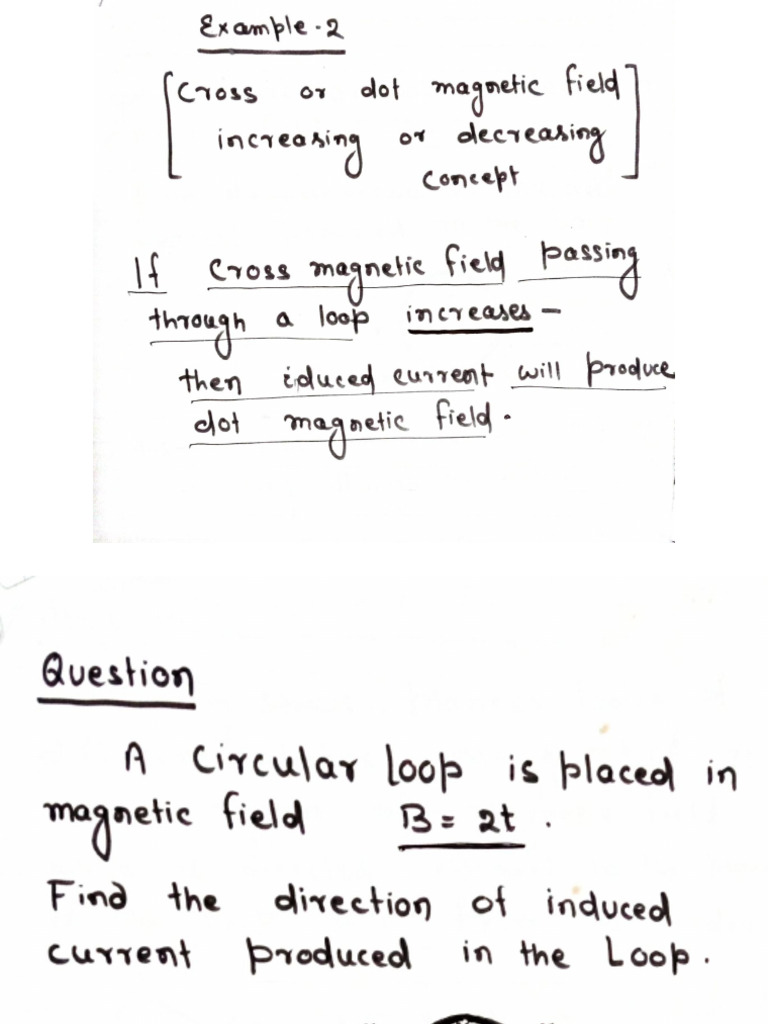 Example-2
[Cross or dot magnetic field
increasing or decreasing
concept]
If cross magnetic field passing
through a loop increases -
then iduced current will produce
dot magnetic field.
Question
A circular loop is placed in
magnetic field B = 2t .
Find the direction of induced
current produced in the Loop.